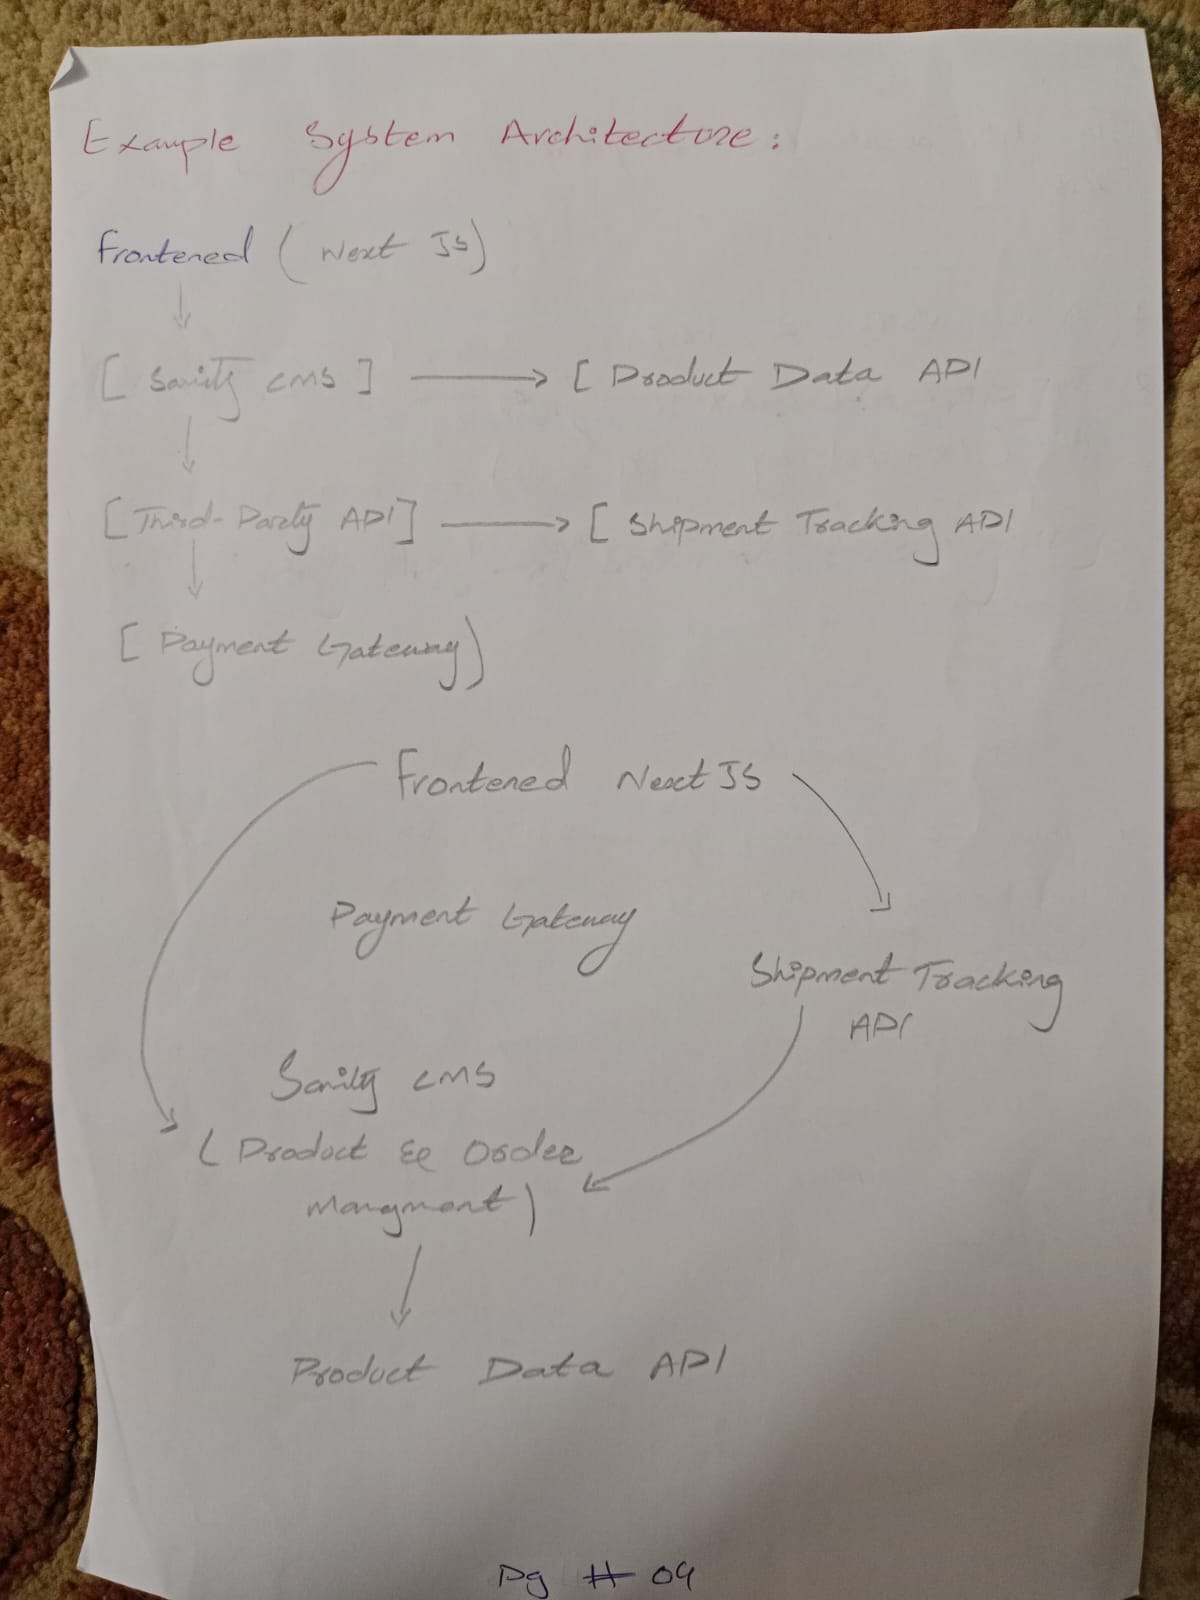 Example System Architecture:
Frontened ( Next JS)
[ Sanity CMS ] → [ Product Data API
[ Third-Party API] → [ Shipment Tracking API
[ Payment Gateway)
Frontened Next JS
Payment Gateway
Shipment Tracking
API
Sanity CMS
( Product & Order
Mangment )
Product Data API
Pg # 09